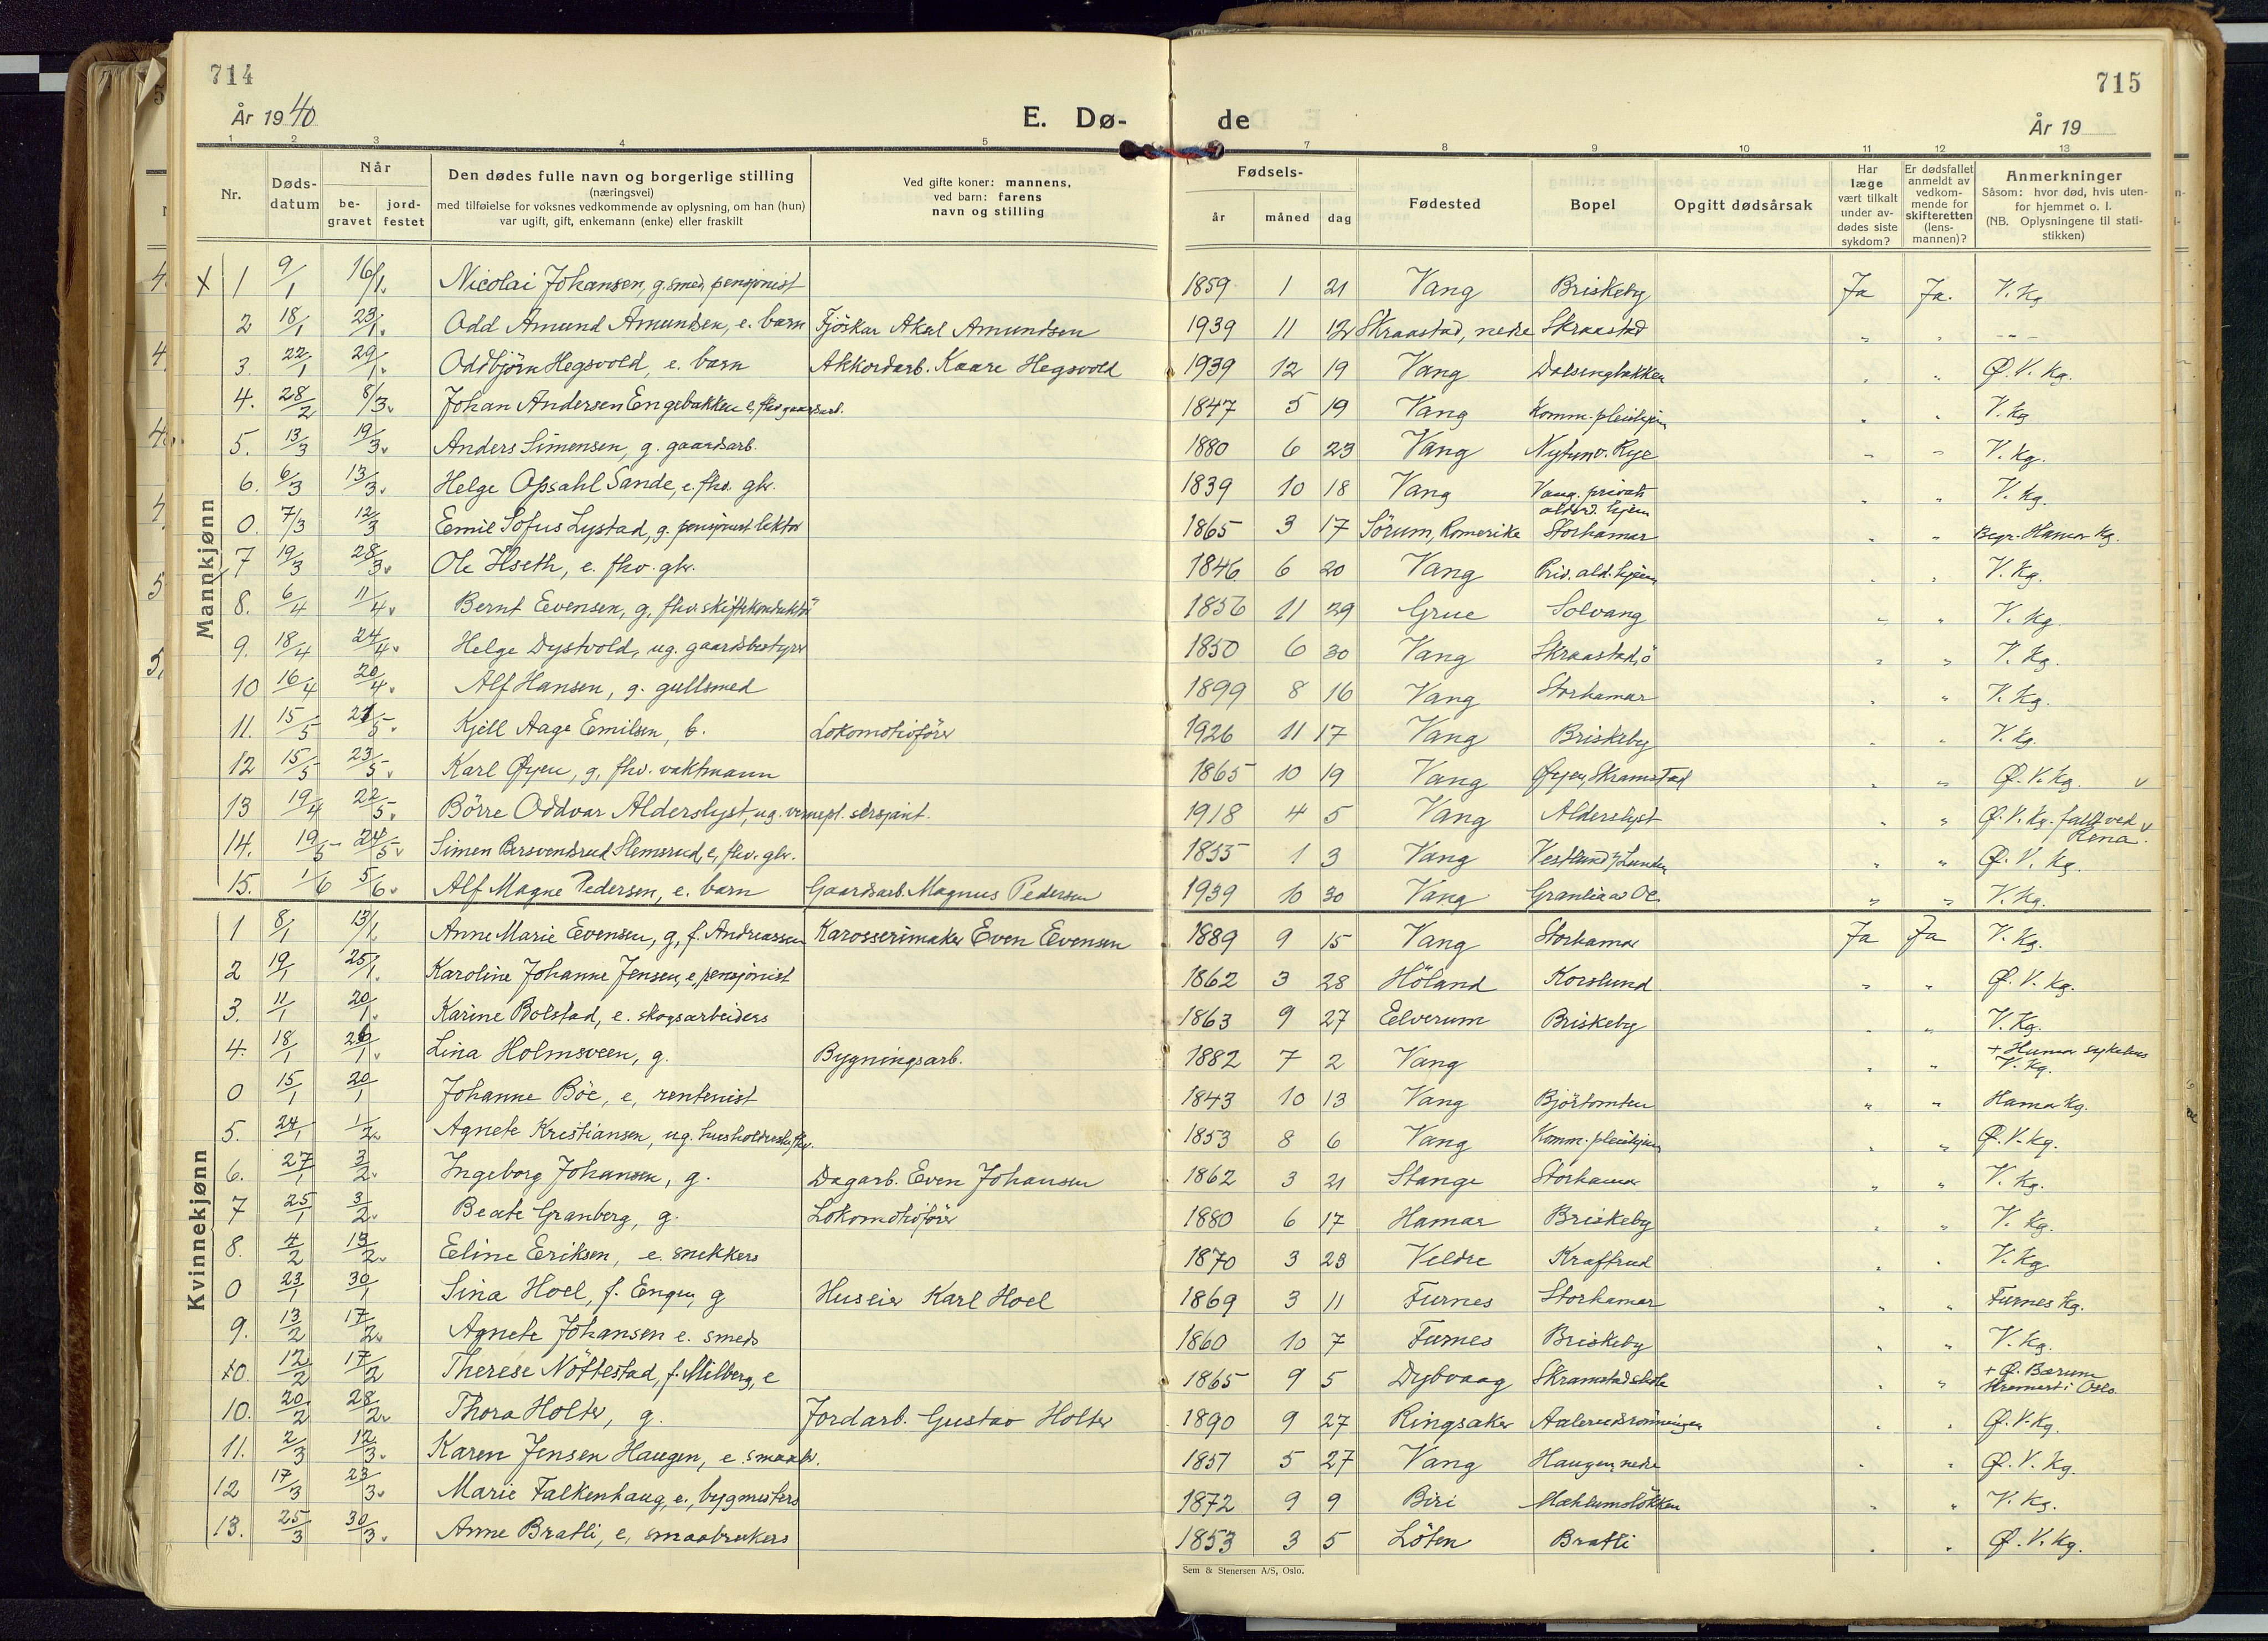 714
År 1940
E. Dø-
1 2 3 4 5
Nr.
Døds-
datum
Når
be-
gravet
jord-
festet
Den dødes fulle navn og borgerlige stilling
(næringsvei)
med tilføielse for voksnes vedkommende av oplysning, om han (hun)
var ugift, gift, enkemann (enke) eller fraskilt
Ved gifte koner: mannens,
ved barn: farens
navn og stilling
Mannkjønn
X 1 9/1 16/1 Nicolai Johansen, g. smed, pensjonist
2 18/1 23/1 Odd Amund Amundsen, e. barn Fjöskar Aksel Amundsen
3. 22/1 29/1 Oddbjörn Hegsvold, e. barn Akkordarb. Kaare Hegsvold
4. 28/2 8/3 Johan Andersen Engebakken e, fhv gaardsarb.
5. 13/3 19/3 Anders Simensen, g. gaardsarb.
6. 6/3 13/3 Helge Opsahl Sande, e. fhv. gbr.
0. 7/3 12/3 Emil Sofus Lystad, g. pensjonert lektor
7 19/3 28/3 Ole Hseth, e. fhv. gbr.
8. 6/4 11/4 Bernt Evensen, g, fhv. skiftekonduktör
9. 18/4 24/4 Helge Dystvold, ug. gaardsbestyrer
10 16/4 20/4 Alf Hansen, g. gullsmed
11. 15/5 21/5 Kjell Aage Emilsen, b. Lokomotivförer
12 15/5 23/5 Karl Øyen, g, fhv. vaktmann
13 19/4 22/5 Börre Oddvar Alderslyst, ug. vernepl. sersjant.
14. 19/5 24/5 Simen Bersvendsrud Slemsrud, e, fhv. gbr.
15. 1/6 5/6 Alf Magne Pedersen, e. barn Gaardsarb. Magnus Pedersen
Kvinnekjønn
1 8/1 13/1 Anne Marie Evensen, g, f. Andreassen Karosserimaker Even Evensen
2 19/1 25/1 Karoline Johanne Jensen, e, pensjonist
3. 11/1 20/1 Karine Bolstad, e. skogsarbeiders
4. 18/1 26/1 Lina Holmsveen, g. Bygningsarb.
0 15/1 20/1 Johanne Böe, e, rentenist
5. 24/1 1/2 Agnete Kristiansen, ug. husholderske, fhv.
6. 27/1 3/2 Ingeborg Johansen, g. Dagarb. Even Johansen
7 25/1 3/2 Beate Granberg, g. Lokomotivförer
8. 4/2 13/2 Eline Eriksen, e. snekkers
0 23/1 30/1 Sina Hoel, f. Engen, g Huseier Karl Hoel
9. 13/2 17/2 Agnete Johansen e. smeds
10. 12/2 17/2 Therese Nöttestad, f. Milberg, e
10. 20/2 28/2 Thora Holter, g. Jordarb. Gustav Holter
11. 2/3 12/3 Karen Jensen Haugen, e. smaabr.
12 17/3 23/3 Marie Falkenhaug, e., bygmesters
13. 25/3 30/3 Anne Bratli, e, smaabrukers
715
de
År 19
7 8 9 10 11 12 13
Fødsels-
år
måned
dag
Fødested
Bopel
Opgitt dødsårsak
Har
læge
vært tilkalt
under av-
dødes siste
sykdom?
Er dødsfallet
anmeldt av
vedkom-
mende for
skifteretten
(lens-
mannen)?
Anmerkninger
Såsom: hvor død, hvis uten-
for hjemmet o. l.
(NB. Oplysningene til stati-
stikken)
1859 1 21 Vang Briskeby Ja Ja. V. Kg
1939 11 12 Skraastad, nedre Skraastad " " ---
1939 12 19 Vang Dalsengbakken " " Ø. V. Kg.
1847 5 19 Vang Komm. pleiehjem " " V. Kg
1880 6 23 Vang Nytun v. Rye " " V. Kg.
1839 10 18 Vang Vang. privat alderd. hjem " " V. Kg.
1865 3 17 Sörum, Romerike Storhamar " " Begr. Hamar Kg.
1846 6 20 Vang Priv. ald. hjem " " V. Kg.
1856 11 29 Grue Solvang " " V. Kg.
1850 6 30 Vang Skraastad, ö " " V. Kg.
1899 8 16 Vang Storhamar " " V. Kg.
1926 11 17 Vang Briskeby " " V. Kg.
1865 10 19 Vang Øyen, Skramstad " " Ø. V. Kg. v
1918 4 5 Vang Alderslyst " " Ø. V. Kg. falt ved v
Rena.
1855 1 3 Vang Vestlund Lunden " " Ø. V. Kg.
1939 10 30 Vang Granlia av " " V. Kg.
1889 9 15 Vang Storhamar Ja Ja V. Kg.
1862 3 28 Höland Korslund " " Ø. V. Kg.
1863 9 27 Elverum Briskeby " " V. Kg.
1882 7 2 Vang " " + Hamar sykehus
V. Kg.
1843 10 13 Vang Björtomten " " Hamar Kg.
1853 8 6 Vang Komm. pleiehjem " " Ø. V. Kg.
1862 3 21 Stange Storhamar " " V. Kg.
1880 6 17 Hamar Briskeby " " V. Kg.
1870 3 23 Veldre Kraftrud " " V. Kg
1869 3 11 Furnes Storhamar " " Furnes Kg.
1860 10 7 Furnes Briskeby " " V. Kg.
1865 9 5 Dybvaag Skramstad skole " " + Ø. Bærum
Kremert i Oslo
1890 9 27 Ringsaker Aalerudsrönningen " " Ø. V. Kg.
1851 5 27 Vang Haugen, nedre " " Ø. V. Kg.
1872 9 9 Biri Mæhlumslökken " " V. Kg.
1853 3 5 Löten Bratli " " Ø. V. Kg.
Sem & Stenersen A/S, Oslo.